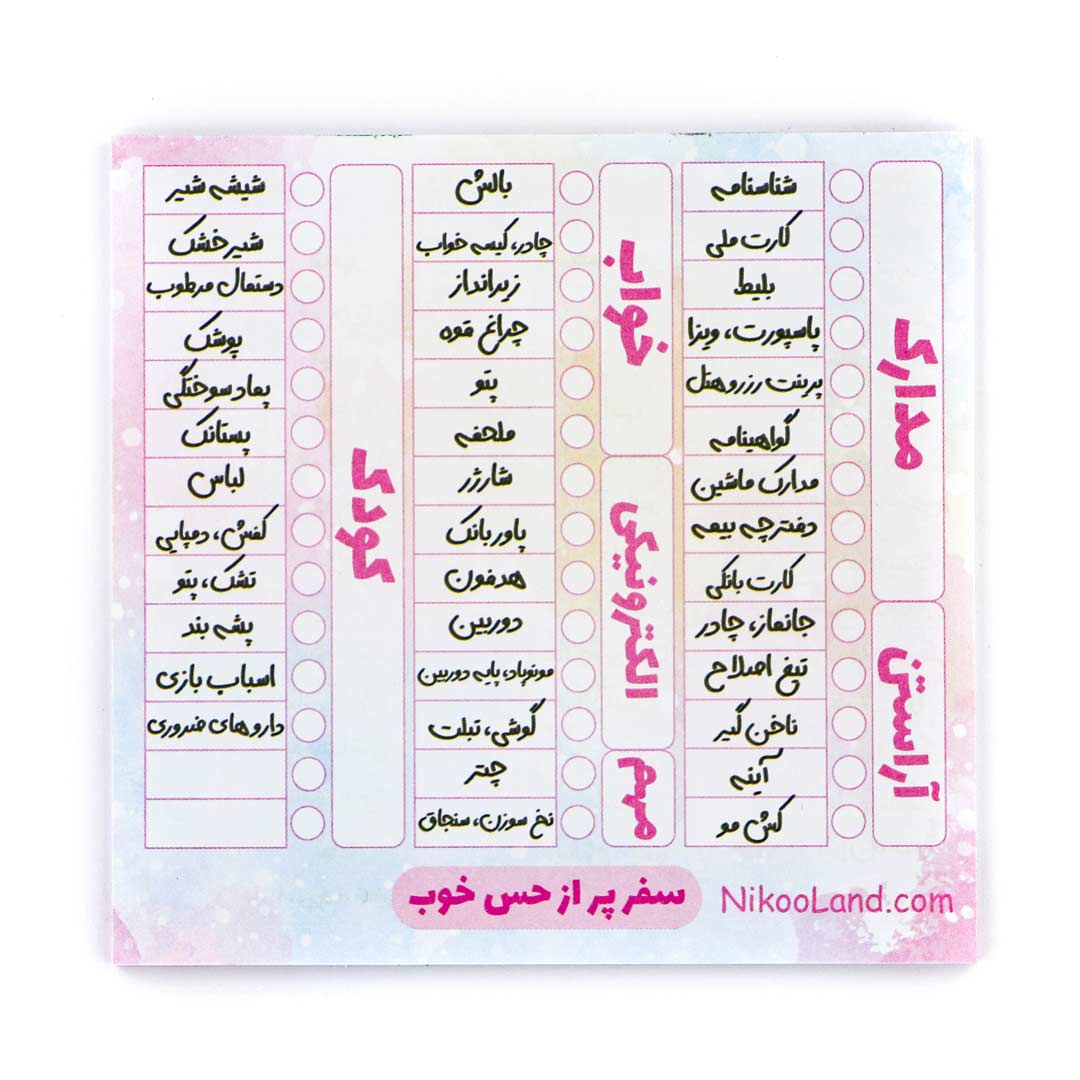 مدارک
شناسنامه
کارت ملی
بلیط
پاسپورت، ویزا
پرینت رزرو هتل
گواهینامه
مدارک ماشین
دفترچه بیمه
کارت بانکی
آراستن
جانماز، چادر
تیغ اصلاح
ناخن گیر
آینه
کش مو
خواب
بالش
چادر، کیسه خواب
زیرانداز
چراغ قوه
پتو
ملحفه
الکترونیکی
شارژر
پاور بانک
هدفون
دوربین
مونوپاد، پایه دوربین
گوشی، تبلت
مهم
چتر
نخ سوزن، سنجاق
کودک
شیشه شیر
شیر خشک
دستمال مرطوب
پوشک
پماد سوختگی
پستانک
لباس
کفش، دمپایی
تشک، پتو
پشه بند
اسباب بازی
داروهای ضروری
سفر پر از حس خوب
NikooLand.com